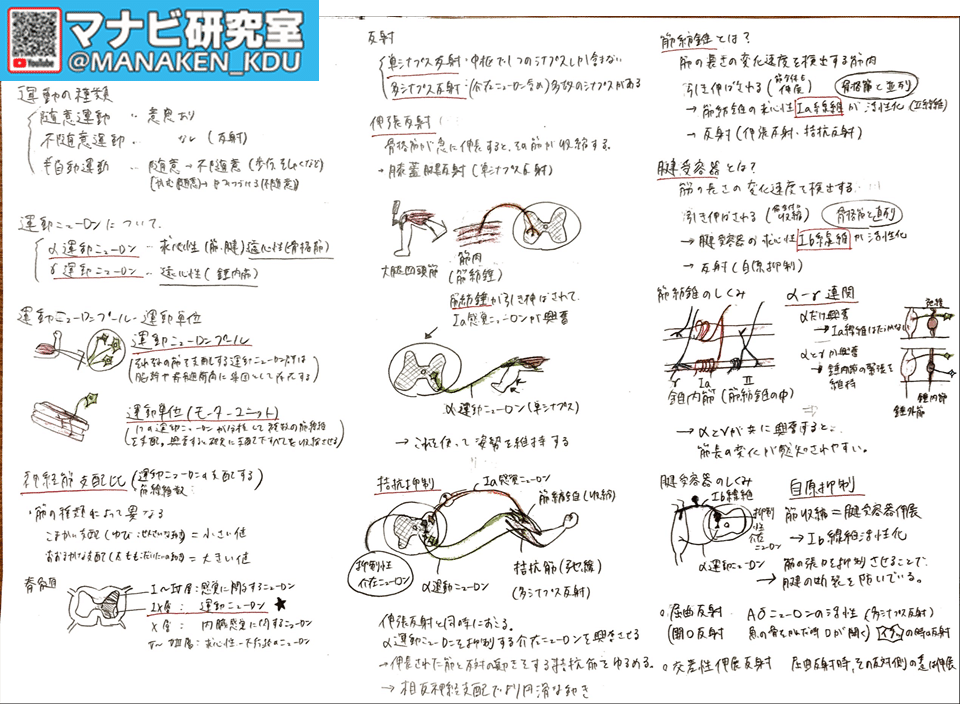 YouTube
マナビ研究室
@MANAKEN_KDU
運動の種類
随意運動 ‥ 意思あり
不随意運動 ‥ なし (反射)
半自動運動 ‥ 随意→不随意 (歩行、そしゃくなど)
運動ニューロンについて
α運動ニューロン ‥ 求心性 (筋、腱) 遠心性 (骨格筋)
γ運動ニューロン ‥ 遠心性 (錘内筋)
運動ニューロンプール・運動単位
運動ニューロンプール
運動単位 (モーターユニット)
神経筋支配比 (運動ニューロンが支配する筋線維数)
・筋の種類によって異なる
= 小さい値
= 大きい値
脊髄
I〜VI層:感覚に関与するニューロン
IX層: 運動ニューロン ★
X層: 内臓感覚に関するニューロン
反射
単シナプス反射・中枢で1つのシナプスしか含まない
多シナプス反射・(介在ニューロン含め)多数のシナプスがある
伸張反射
骨格筋が急に伸長すると、その筋が収縮する。
→ 膝蓋腱反射 (単シナプス反射)
大腿四頭筋
筋肉
(筋紡錘)
筋紡錘が引き伸ばされて
Ia感覚ニューロンが興奮
α運動ニューロン (単シナプス)
→ これを使って姿勢を維持する
拮抗抑制
Ia感覚ニューロン
筋紡錘 (収縮)
抑制性
介在ニューロン
α運動ニューロン
拮抗筋 (弛緩)
(多シナプス反射)
伸張反射と同時におこる。
α運動ニューロンを抑制する介在ニューロンを興奮させる
→ 伸長された筋と反対の動きをする拮抗筋をゆるめる。
→ 相反神経支配でより円滑な動き
筋紡錘とは?
筋の長さの変化速度を検出する筋肉
引き伸ばされる (筋がより伸展) 骨格筋と並列
→ 筋紡錘の求心性 Ia線維が活性化
→ 反射 (伸張反射・拮抗反射)
腱受容器とは?
筋の長さの変化速度で検出する
引き伸ばされる 骨格筋と直列
→ 腱受容器の求心性 Ib線維が活性化
→ 反射 (自原抑制)
筋紡錘のしくみ
γ Ia II
錘内筋 (筋紡錘の中)
α-γ連関
αだけ興奮
→ Ia線維はたるめない
αとγが興奮
→ 錘内筋の緊張を維持
弛緩
錘内筋
錘外筋
→ αとγが共に興奮すると、
筋長の変化が感知されやすい。
腱受容器のしくみ
Ib線維
抑制性介在ニューロン
α運動ニューロン
自原抑制
筋収縮=腱受容器伸展
→ Ib線維活性化
筋の張力を抑制させることで、
→ 腱の断裂を防いでいる。
○屈曲反射 Aδニューロンの活性 (多シナプス反射)
(開口反射) 魚の骨をかんだ時口が開く
○交差性伸展反射 屈曲反射時、その反対側の足は伸展